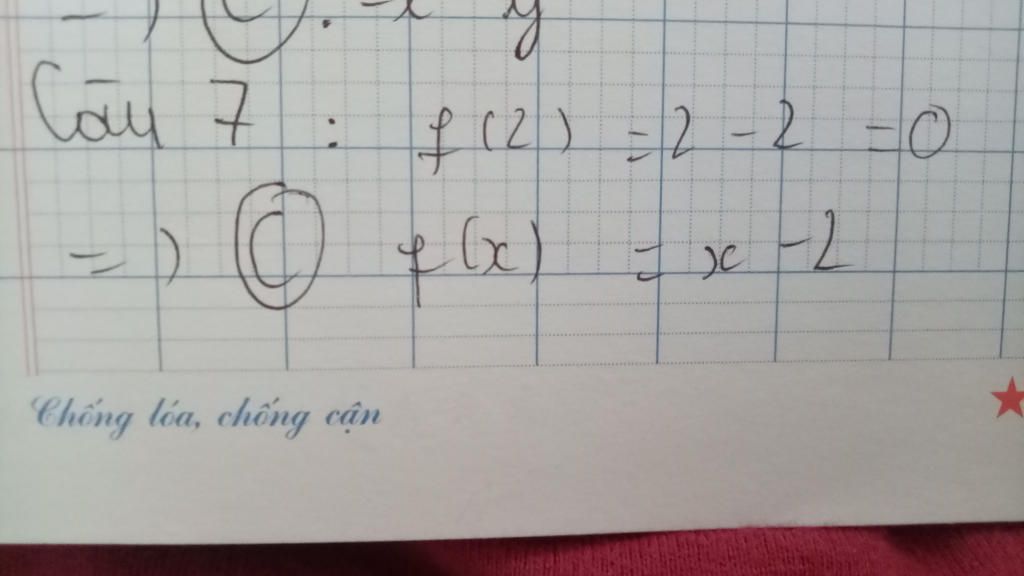 =) C . -x y
Câu 7 : f(2) = 2 - 2 = 0
=) C f(x) = x - 2
Chống lóa, chống cận